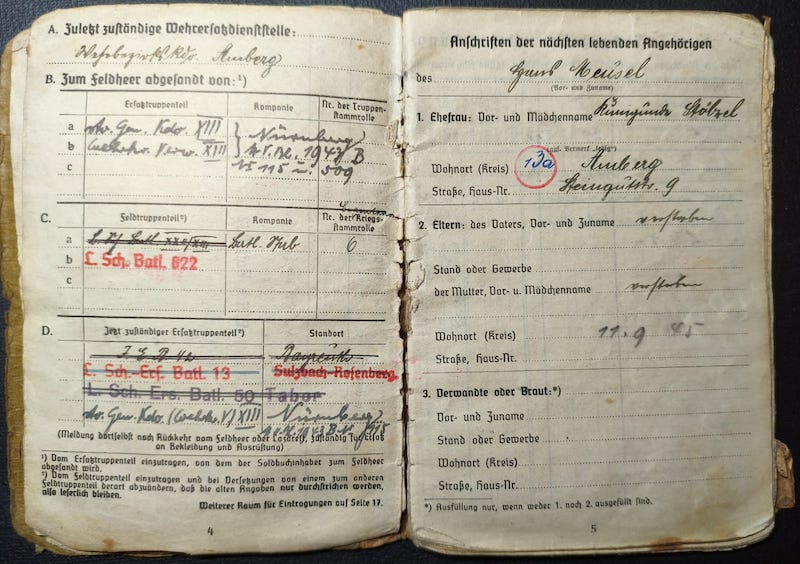 A. Zuletzt zuständige Wehrersatzdienststelle:
Wehrbezirks Kdo. Amberg
B. Zum Feldheer abgesandt von:¹)
Ersatztruppenteil
Kompanie
Nr. der Truppenstammrolle
a
Gen. Kdo XIII
Nürnberg
b
XIII
1943 B
c
N 115 509
C.
Feldtruppenteil²)
Kompanie
Nr. der Kriegsstammrolle
a
Batl. Stab
6
b
L. Sch. Batl. 822
c
D.
Jetzt zuständiger Ersatztruppenteil²)
Standort
Bayreuth
L. Sch.-Ers. Batl. 13
Sulzbach-Rosenberg
L. Sch. Ers. Batl. 50 Tabor
Gen. Kdo XIII
Nürnberg
(Meldung dortselbst nach Rückkehr vom Feldheer oder Lazarett, zuständig für Ersatz
an Bekleidung und Ausrüstung)
¹) Vom Ersatztruppenteil einzutragen, von dem der Soldbuchinhaber zum Feldheer
abgesandt wird.
²) Vom Feldtruppenteil einzutragen und bei Versetzungen von einem zum anderen
Feldtruppenteil derart abzuändern, daß die alten Angaben nur durchstrichen werden,
also leserlich bleiben.
Weiterer Raum für Eintragungen auf Seite 17.
4
Anschriften der nächsten lebenden Angehörigen
des Hans Meusel
(Vor- und Zuname)
1. Ehefrau: Vor- und Mädchenname Kunigunde Stölzel
Wohnort (Kreis) 13a Amberg
Straße, Haus-Nr. Steingutstr. 9
2. Eltern: des Vaters, Vor- und Zuname verstorben
Stand oder Gewerbe
der Mutter, Vor- u. Mädchenname verstorben
Wohnort (Kreis) 11.9 45
Straße, Haus-Nr.
3. Verwandte oder Braut:*)
Vor- und Zuname
Stand oder Gewerbe
Wohnort (Kreis)
Straße, Haus-Nr.
*) Ausfüllung nur, wenn weder 1. noch 2. ausgefüllt sind.
5